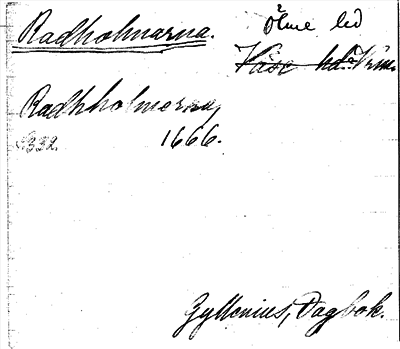 Radholmarna.
Ölme hd
Väse hd. Vrm.
Radhholmerna,
S. 332. 1666.
Gyllenius, Dagbok.